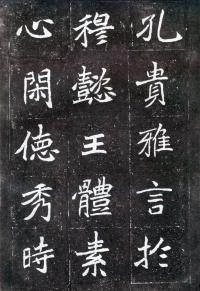 孔貴雅言扵
穆懿王體素
心閑德秀時